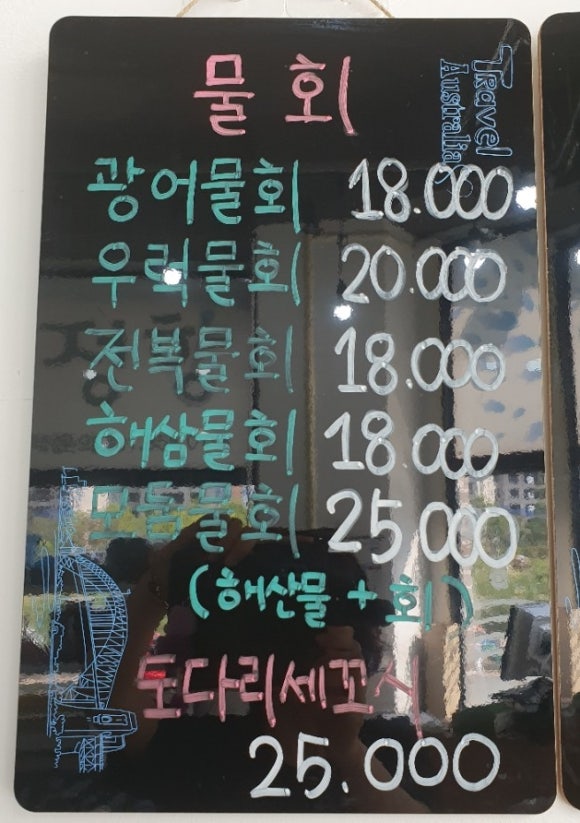 물회
Travel
Australia
광어물회 18.000
우럭물회 20.000
전복물회 18.000
해삼물회 18.000
모듬물회 25.000
(해산물 + 회)
도다리세꼬시
25.000